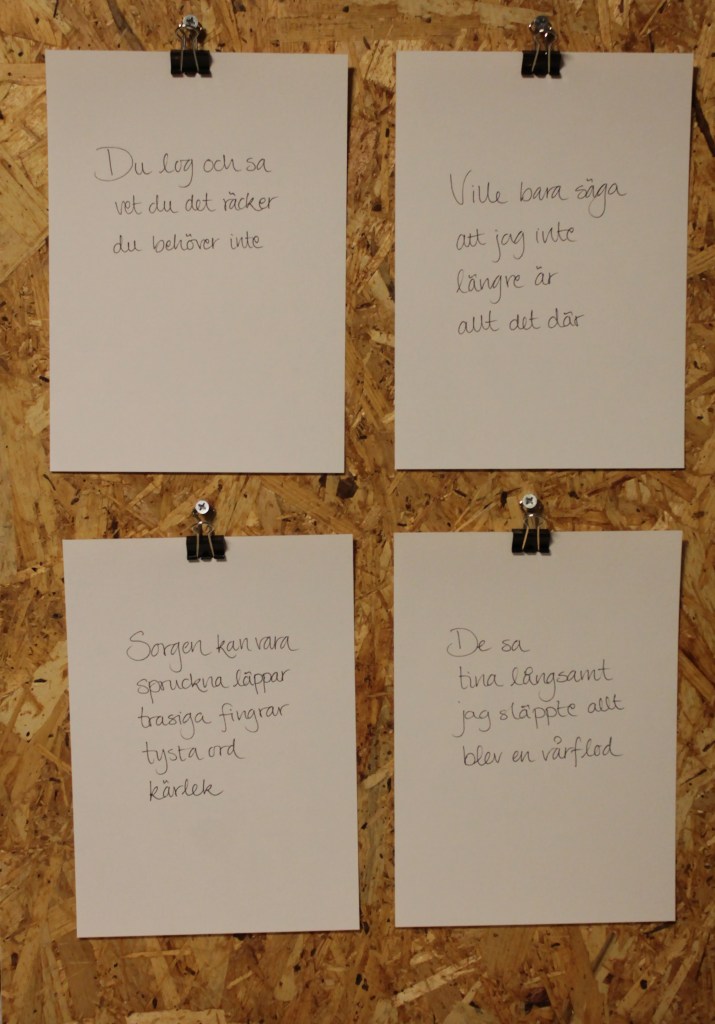 Du log och sa
vet du det räcker
du behöver inte
Ville bara säga
att jag inte
längre är
allt det där
Sorgen kan vara
spruckna läppar
trasiga fingrar
tysta ord
kärlek
De sa
tina långsamt
jag släppte allt
blev en vårflod